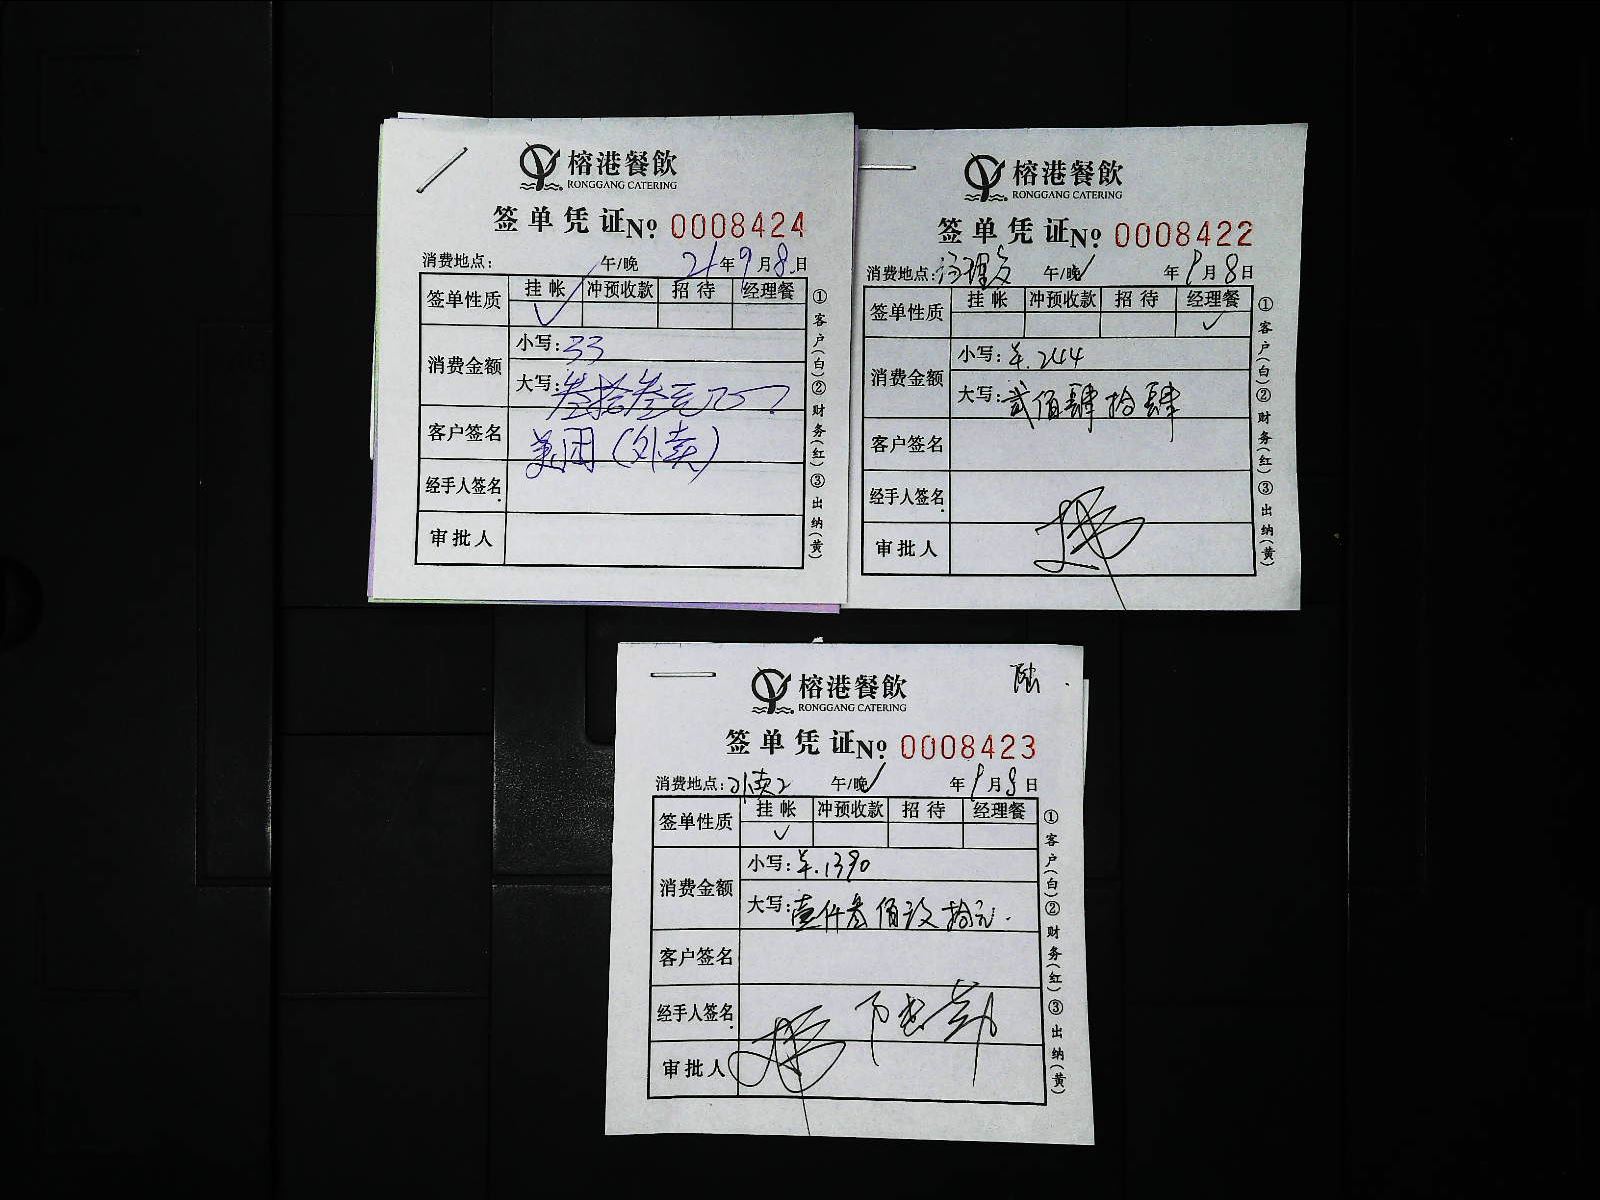 榕港餐飲
RONGGANG CATERING
签单凭证 Nº 0008424
消费地点： 午/晚 21年9月8日
签单性质 挂帐 冲预收款 招待 经理餐
✓
消费金额 小写：33
大写：叁拾叁元正
客户签名 (外卖)
经手人签名
审批人
①客户(白)②财务(红)③出纳(黄)
榕港餐飲
RONGGANG CATERING
签单凭证 Nº 0008422
消费地点： 午/晚✓ 年9月8日
签单性质 挂帐 冲预收款 招待 经理餐
✓
消费金额 小写：¥.244
大写：贰佰肆拾肆
客户签名
经手人签名
审批人
①客户(白)②财务(红)③出纳(黄)
榕港餐飲
RONGGANG CATERING
签单凭证 Nº 0008423
消费地点：外卖2 午/晚✓ 年9月8日
签单性质 挂帐 冲预收款 招待 经理餐
✓
消费金额 小写：¥.1390
大写：壹仟叁佰玖拾元.
客户签名
经手人签名
审批人
①客户(白)②财务(红)③出纳(黄)